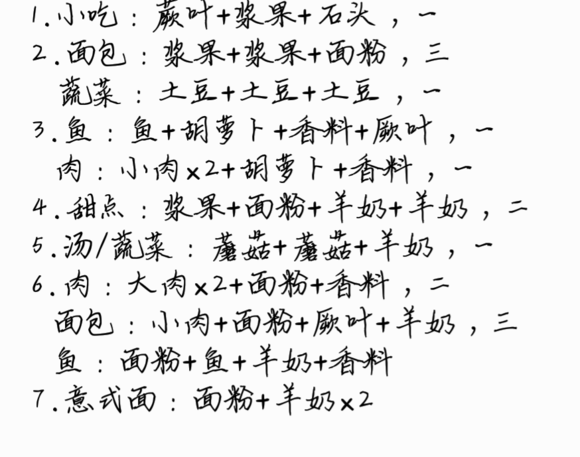 1.小吃：蕨叶+浆果+石头，一
2.面包：浆果+浆果+面粉，三
蔬菜：土豆+土豆+土豆，一
3.鱼：鱼+胡萝卜+香料+厥叶，一
肉：小肉×2+胡萝卜+香料，一
4.甜点：浆果+面粉+羊奶+羊奶，二
5.汤/蔬菜：蘑菇+蘑菇+羊奶，一
6.肉：大肉×2+面粉+香料，二
面包：小肉+面粉+厥叶+羊奶，三
鱼：面粉+鱼+羊奶+香料
7.意式面：面粉+羊奶×2